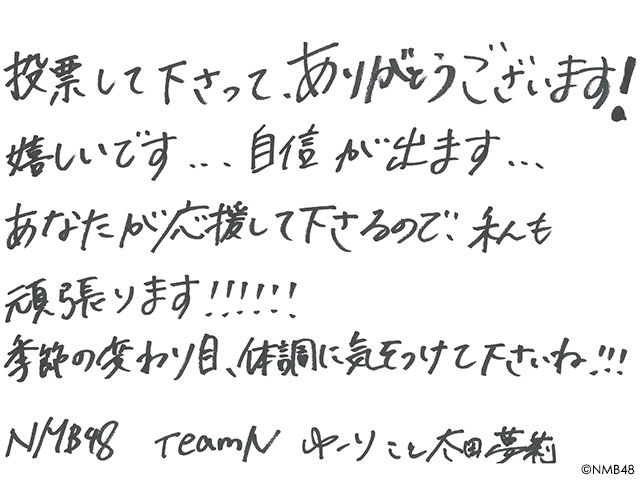 投票して下さって、ありがとうございます!
嬉しいです... 自信が出ます...
あなたが応援して下さるので、私も
頑張ります!!!!!!
季節の変わり目、体調に気をつけて下さいね!!!
NMB48 TeamN ゆーりこと太田夢莉
©NMB48